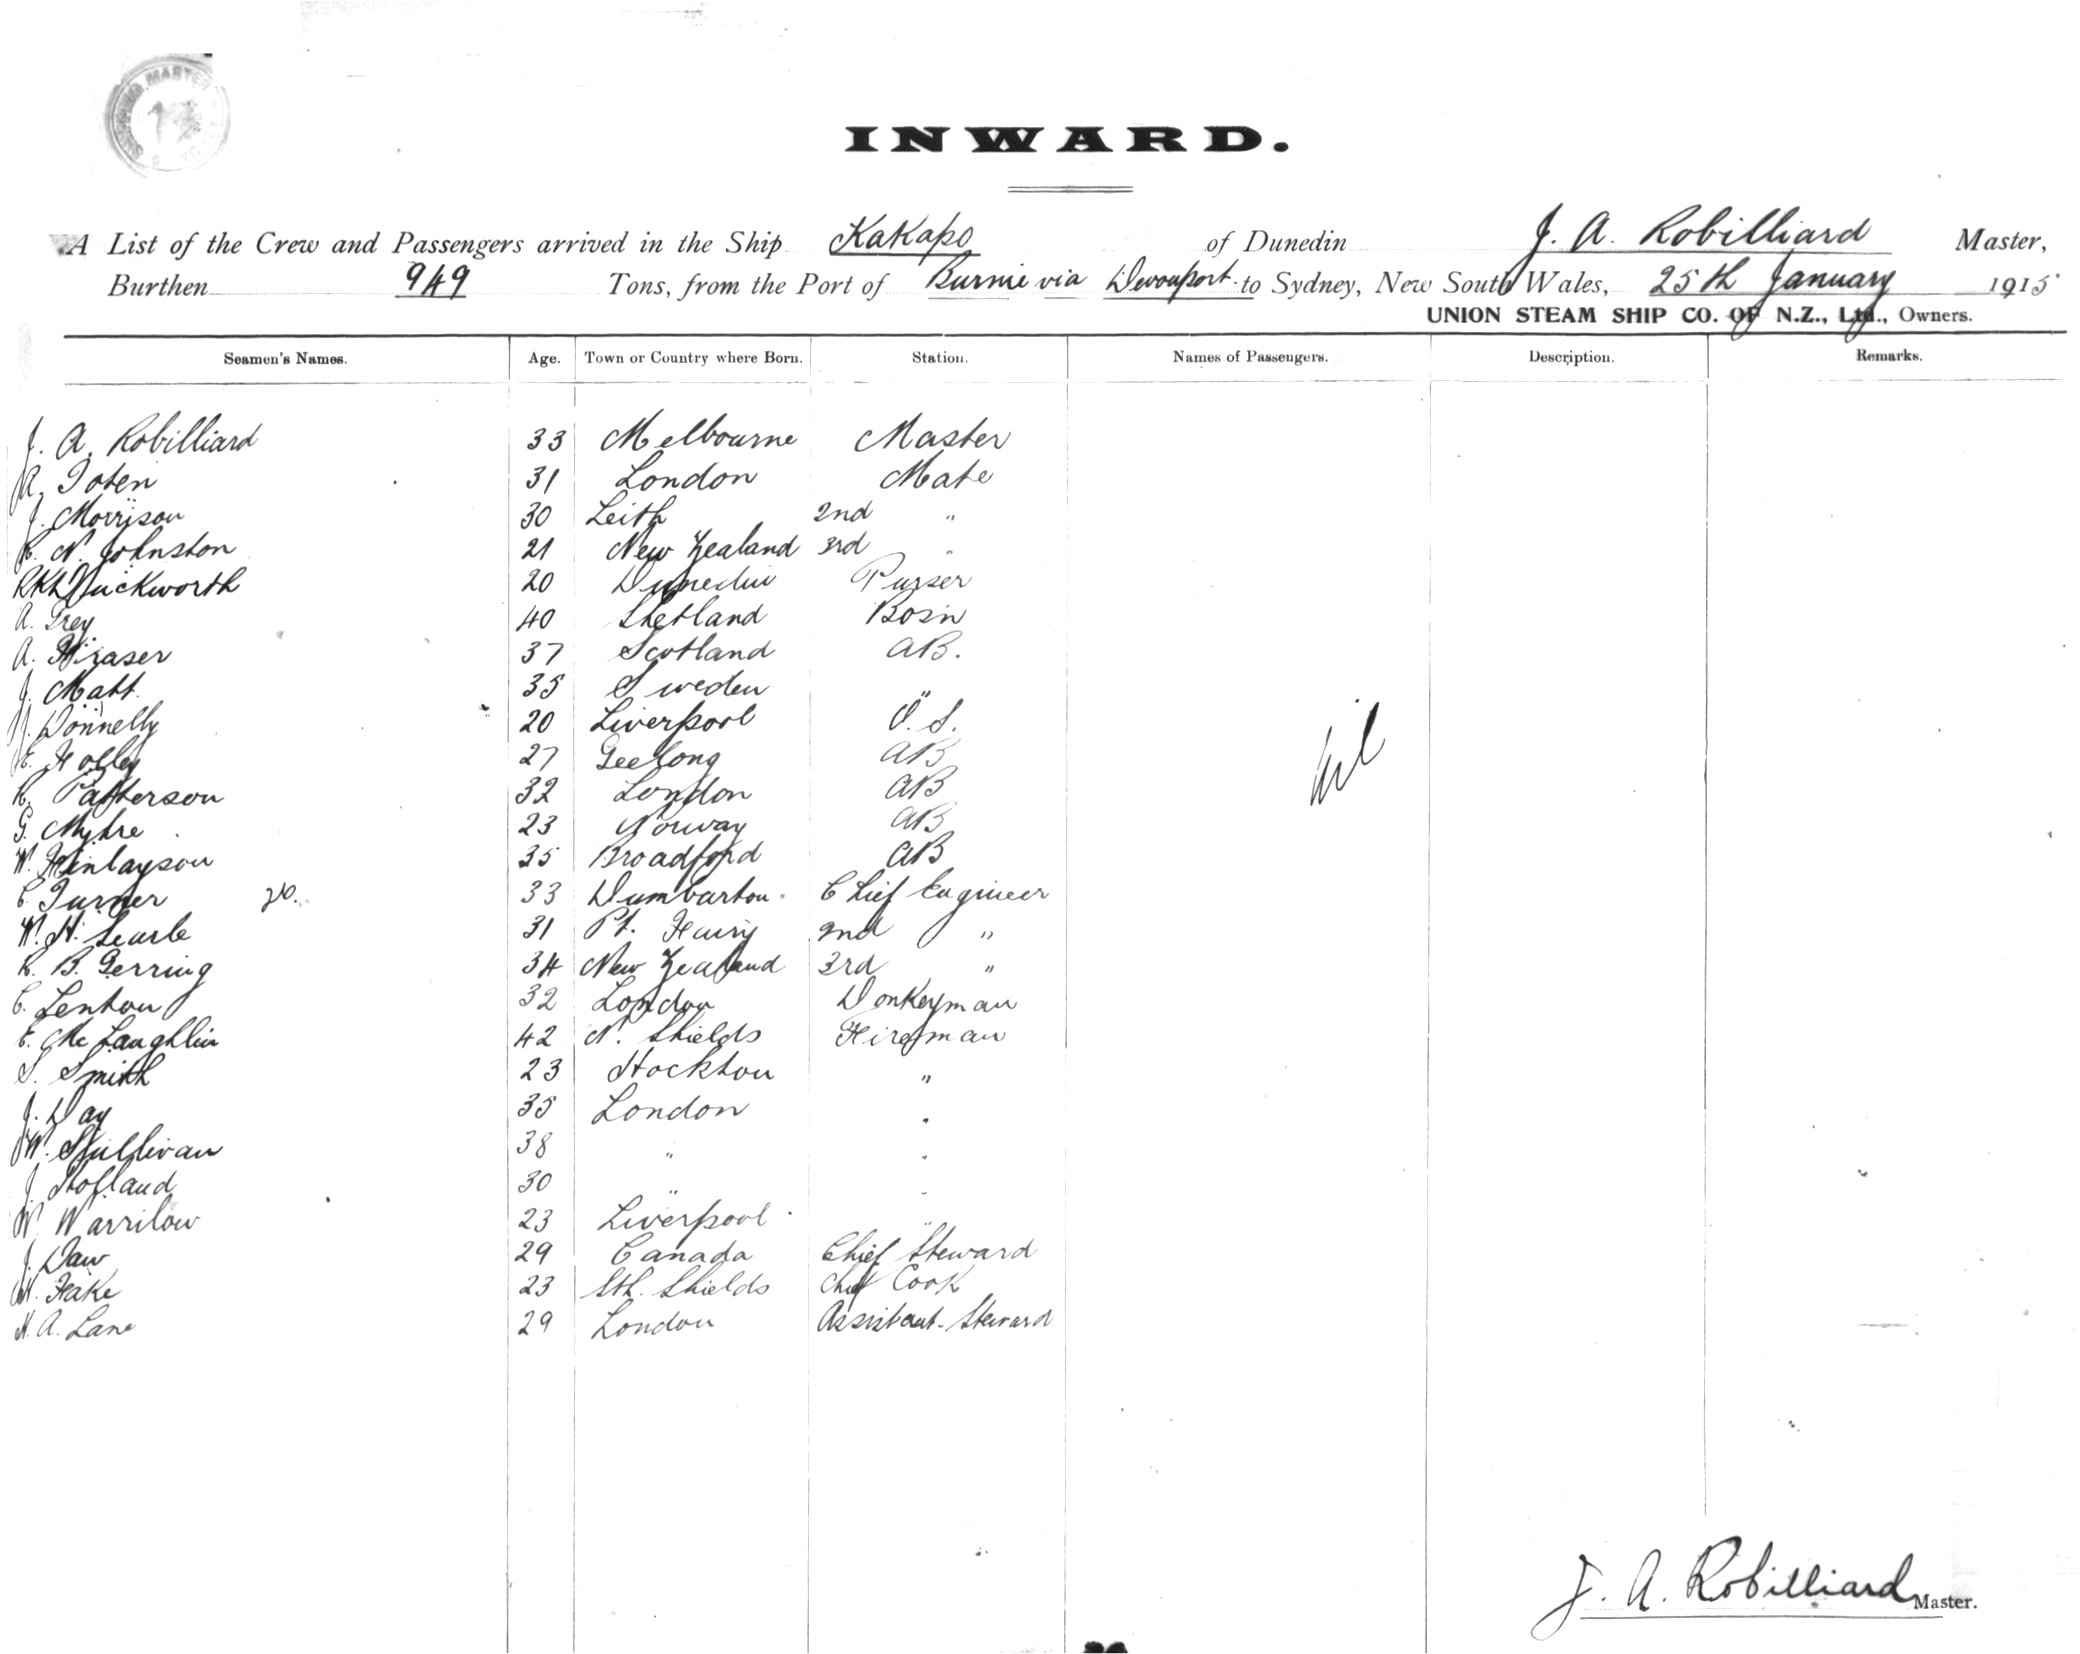 SHIPPING MASTER
INWARD.
A List of the Crew and Passengers arrived in the Ship Kakapo of Dunedin J. A. Robilliard Master,
Burthen 949 Tons, from the Port of Burnie via Devonport to Sydney, New South Wales, 25th January 1915
UNION STEAM SHIP CO. OF N.Z., Ltd., Owners.
Seamen's Names. Age. Town or Country where Born. Station. Names of Passengers. Description. Remarks.
J. A. Robilliard 33 Melbourne Master
31 London Mate
J. Morrison 30 Leith 2nd "
R. N. Johnston 21 New Zealand 3rd "
Duckworth 20 Dunedin Purser
A. Grey 40 Shetland Bosn
A. Fraser 37 Scotland AB.
J. Matt. 35 Sweden "
J. Donnelly 20 Liverpool O. S.
E. Holley 27 Geelong AB
R. Patterson 32 London AB
G. Myhre 23 Norway AB
W. Finlayson 35 Broadford AB
C. Turner 33 Dumbarton Chief Engineer
W. H. Searle 31 Pt. Fairy 2nd "
R. B. Gerring 34 New Zealand 3rd "
C. Lenton 32 London Donkeyman
E. McLaughlin 42 N. Shields Fireman
S. Smith 23 Stockton "
J. Day 35 London "
W. Sullivan 38 " "
J. Holland 30 " "
W. Warrilow 23 Liverpool "
J. Daw 29 Canada Chief Steward
H. Hake 23 Sth. Shields Chief Cook
H. A. Lane 29 London Assistant Steward
Nil
J. A. Robilliard Master.